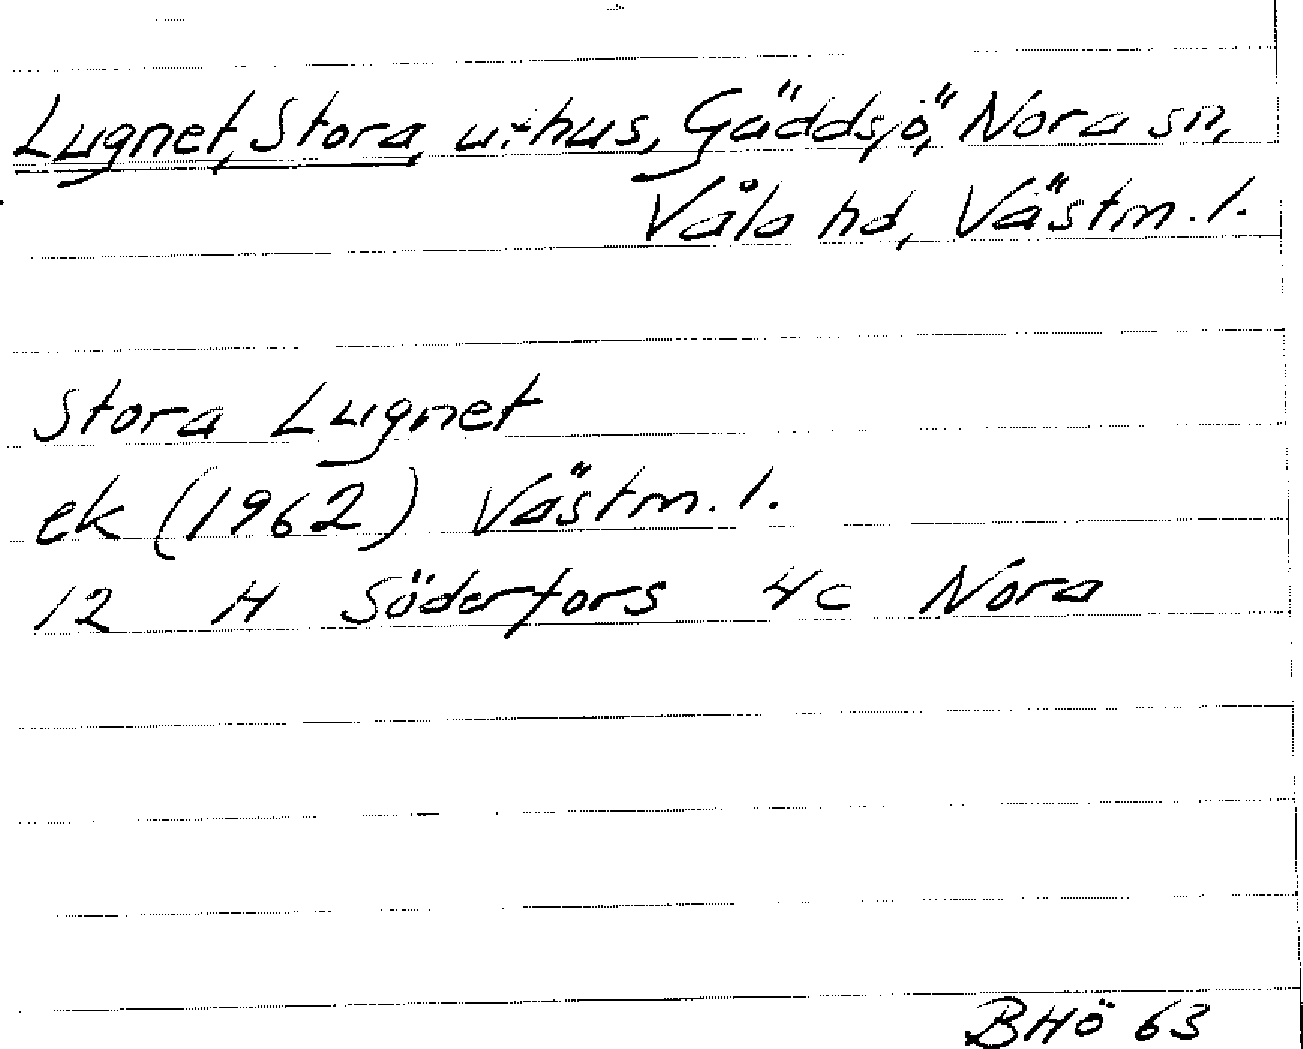 Lugnet, Stora, uthus, Gäddsjö, Nora sn,
Våla hd, Västm. l.
Stora Lugnet
ek (1962) Västm. l.
12 H Söderfors 4c Nora
BHÖ 63